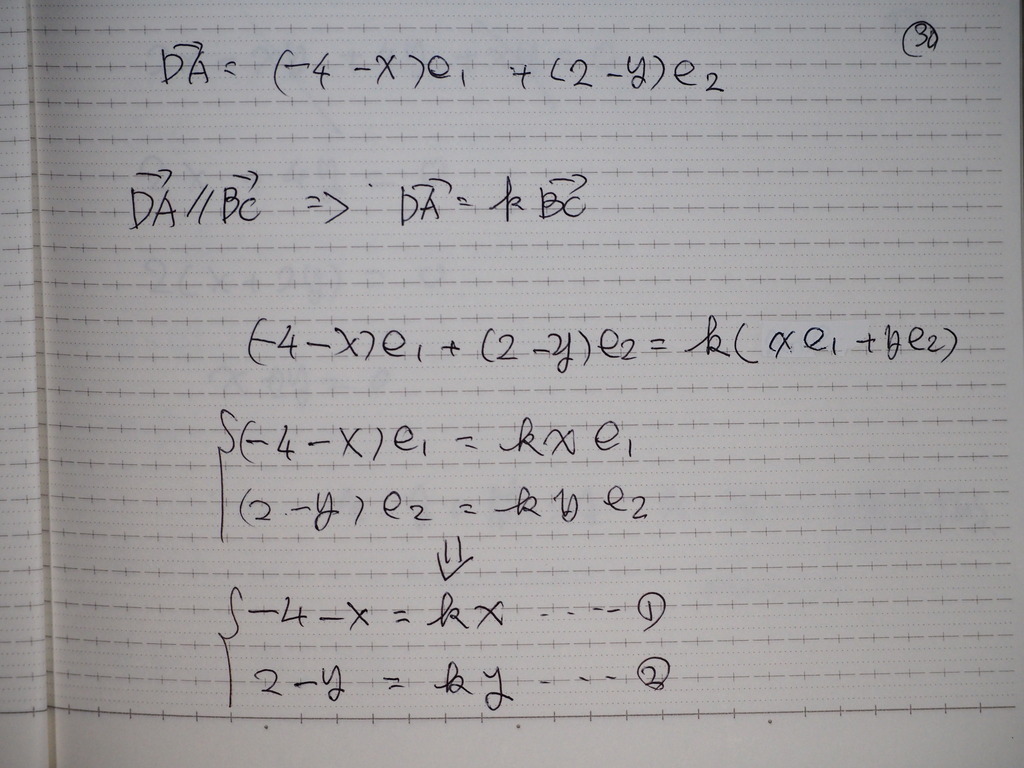 (30)
DA⃗ = (-4 - x)e₁ + (2 - y)e₂
DA⃗ // BC⃗ => DA⃗ = k BC⃗
(-4 - x)e₁ + (2 - y)e₂ = k( xe₁ + ye₂)
{ (-4 - x)e₁ = kx e₁
(2 - y)e₂ = k y e₂
⇓
{ -4 - x = kx ---- ①
2 - y = ky ---- ②